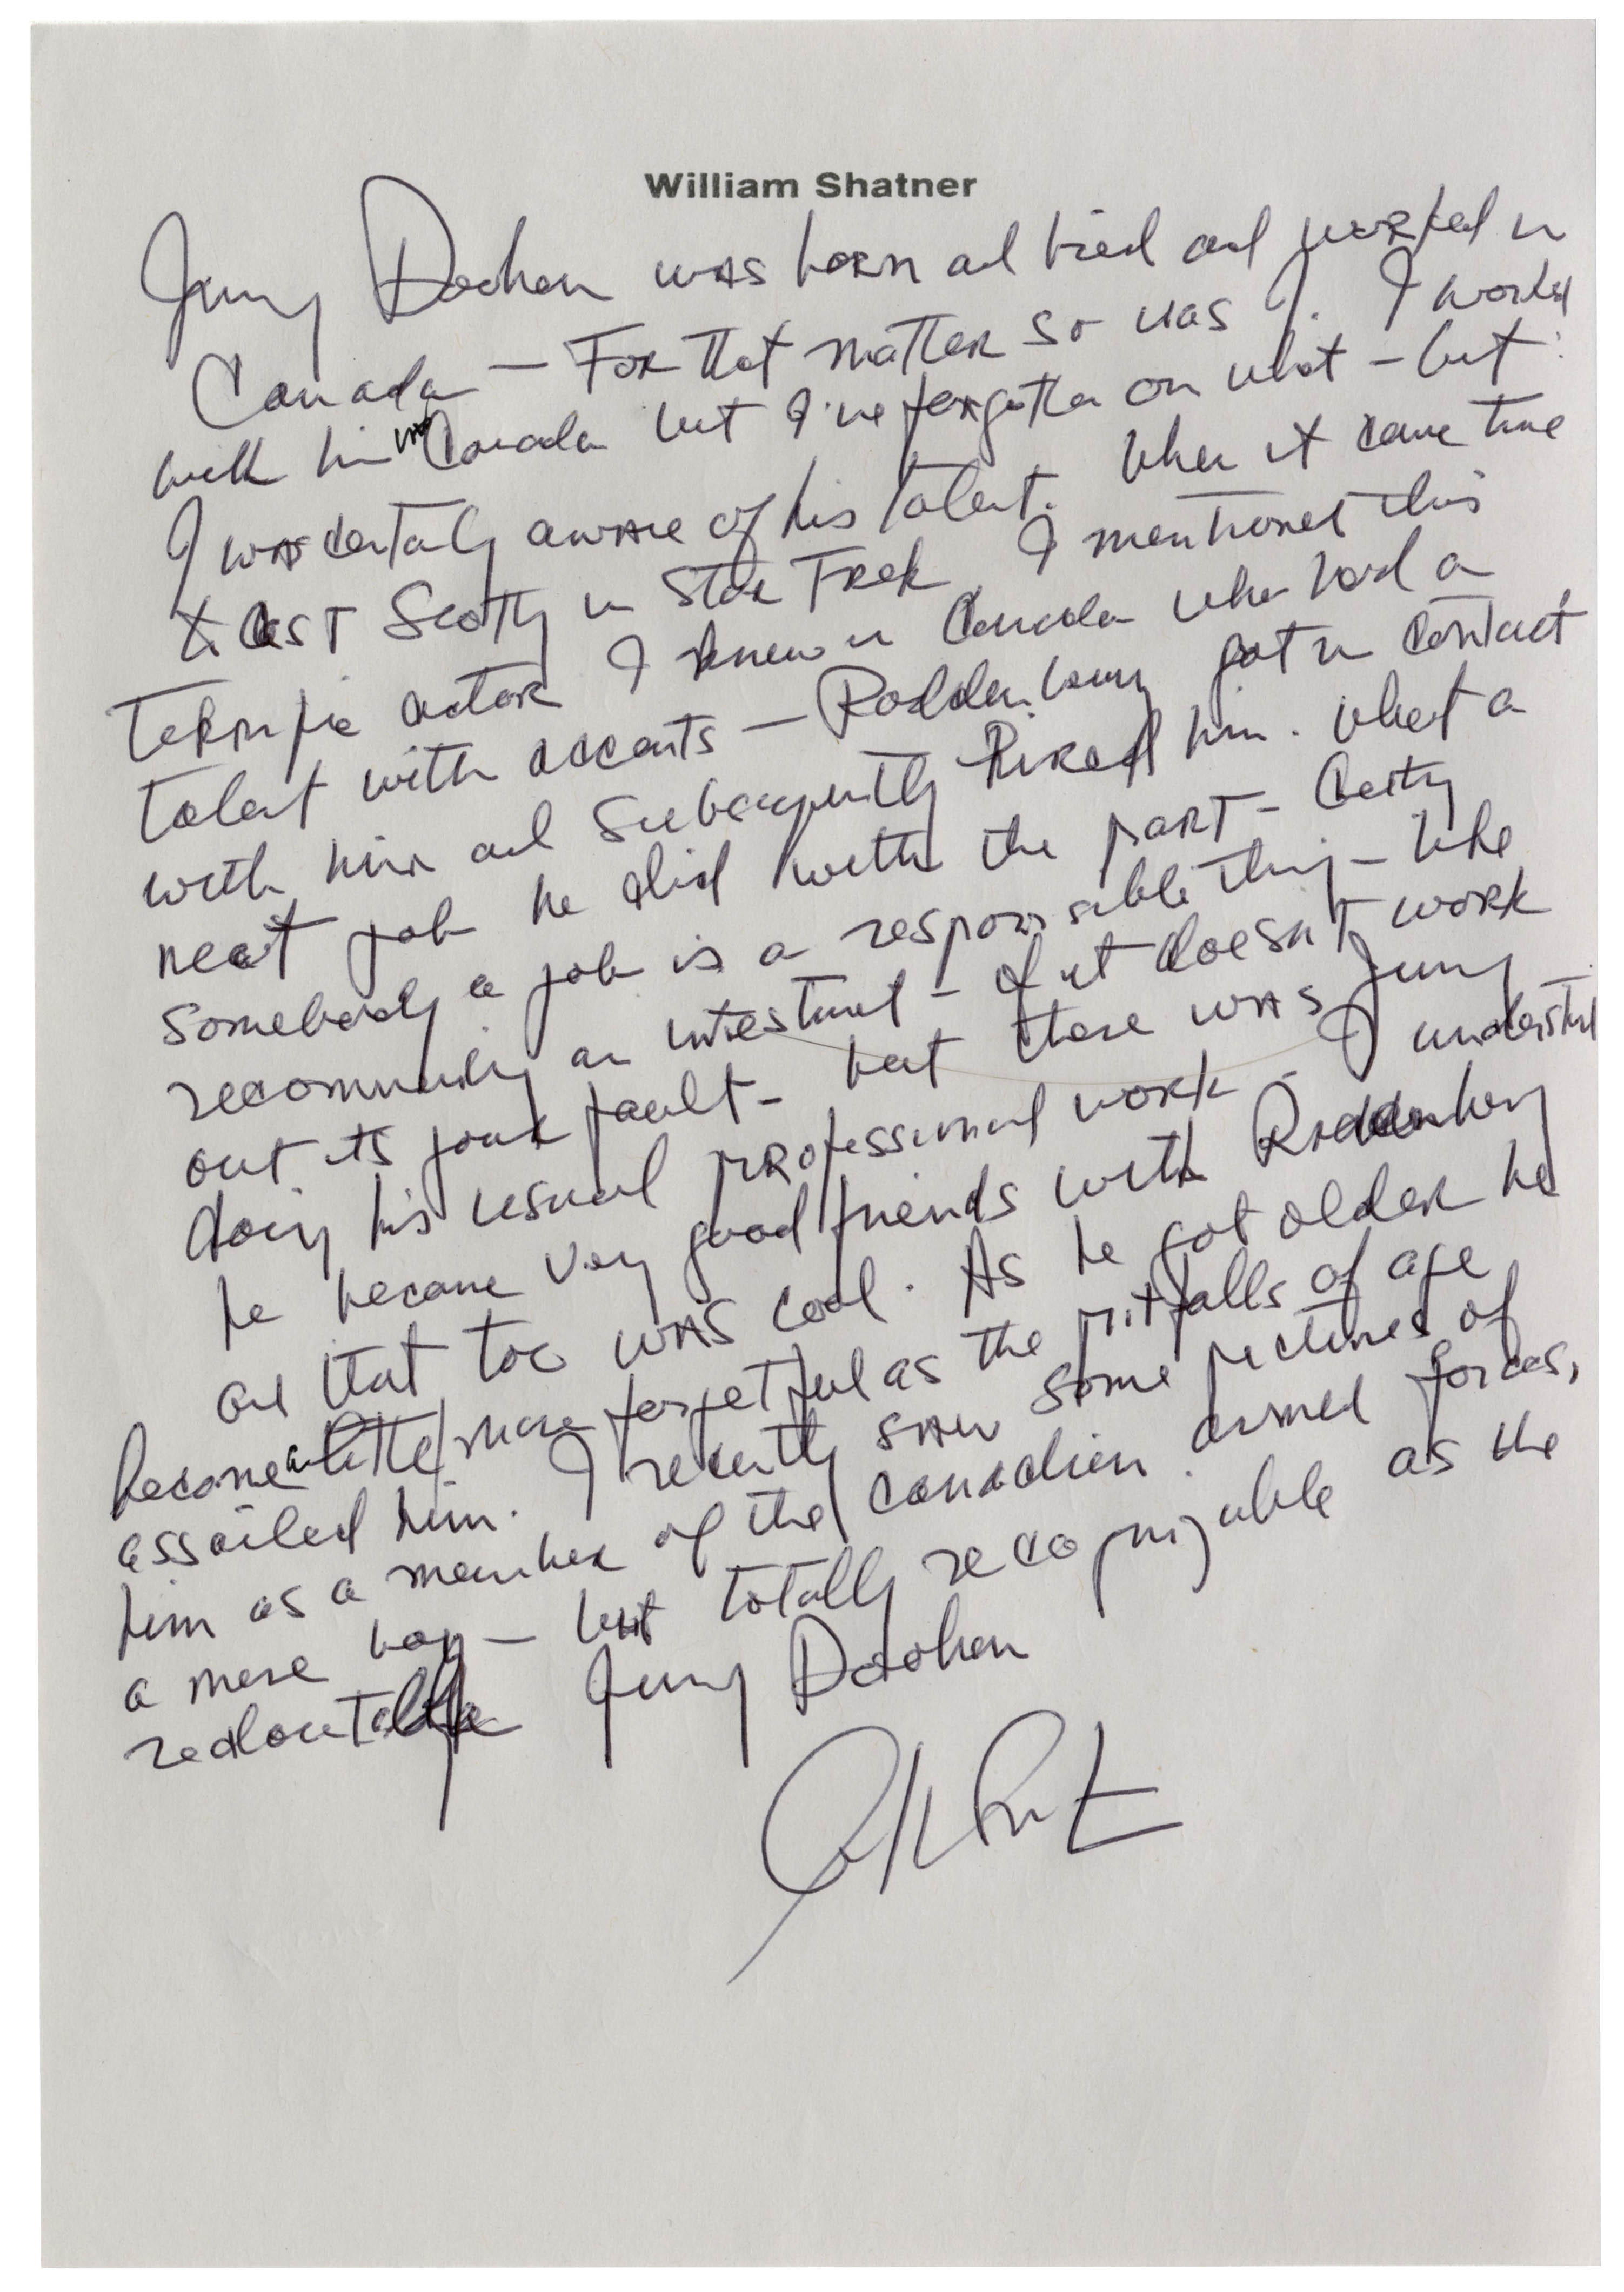 William Shatner
Jimmy Doohan was born and bred and worked in
Canada — For that matter so was I. I worked
with him in Canada but I've forgotten on what — but
I was certainly aware of his talent. When it came time
to cast Scotty in Star Trek I mentioned this
terrific actor I knew in Canada who had a
talent with accents — Roddenberry got in contact
with him and subsequently hired him. What a
neat job he did with the part — Getting
somebody a job is a responsible thing — like
recommending an intestinal — if it doesn't work
out its your fault — but there was Jimmy
doing his usual professional work — I understand
he became very good friends with Roddenberry
and that too was cool. As he got older he
became a little more forgetful as the pitfalls of age
assailed him. I recently saw some pictures of
him as a member of the Canadian armed forces,
a mere boy — but totally recognizable as the
redoubtable Jimmy Doohan